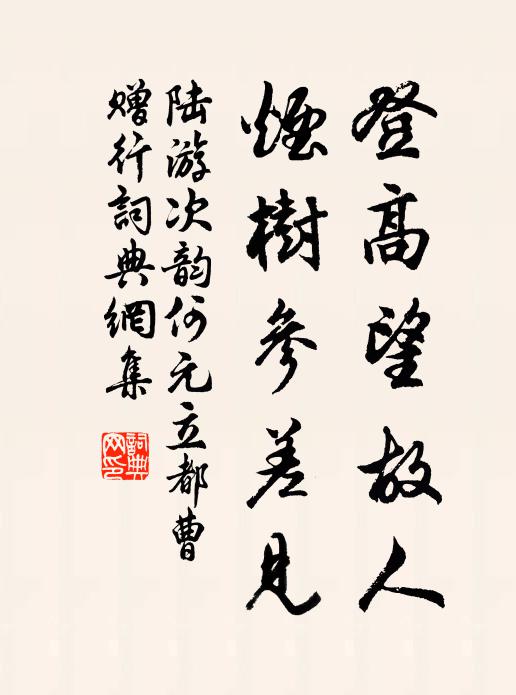 登高望故人
煙樹參差見
陆游次韵何元立都曹
赠行詞典網集
詞典网印